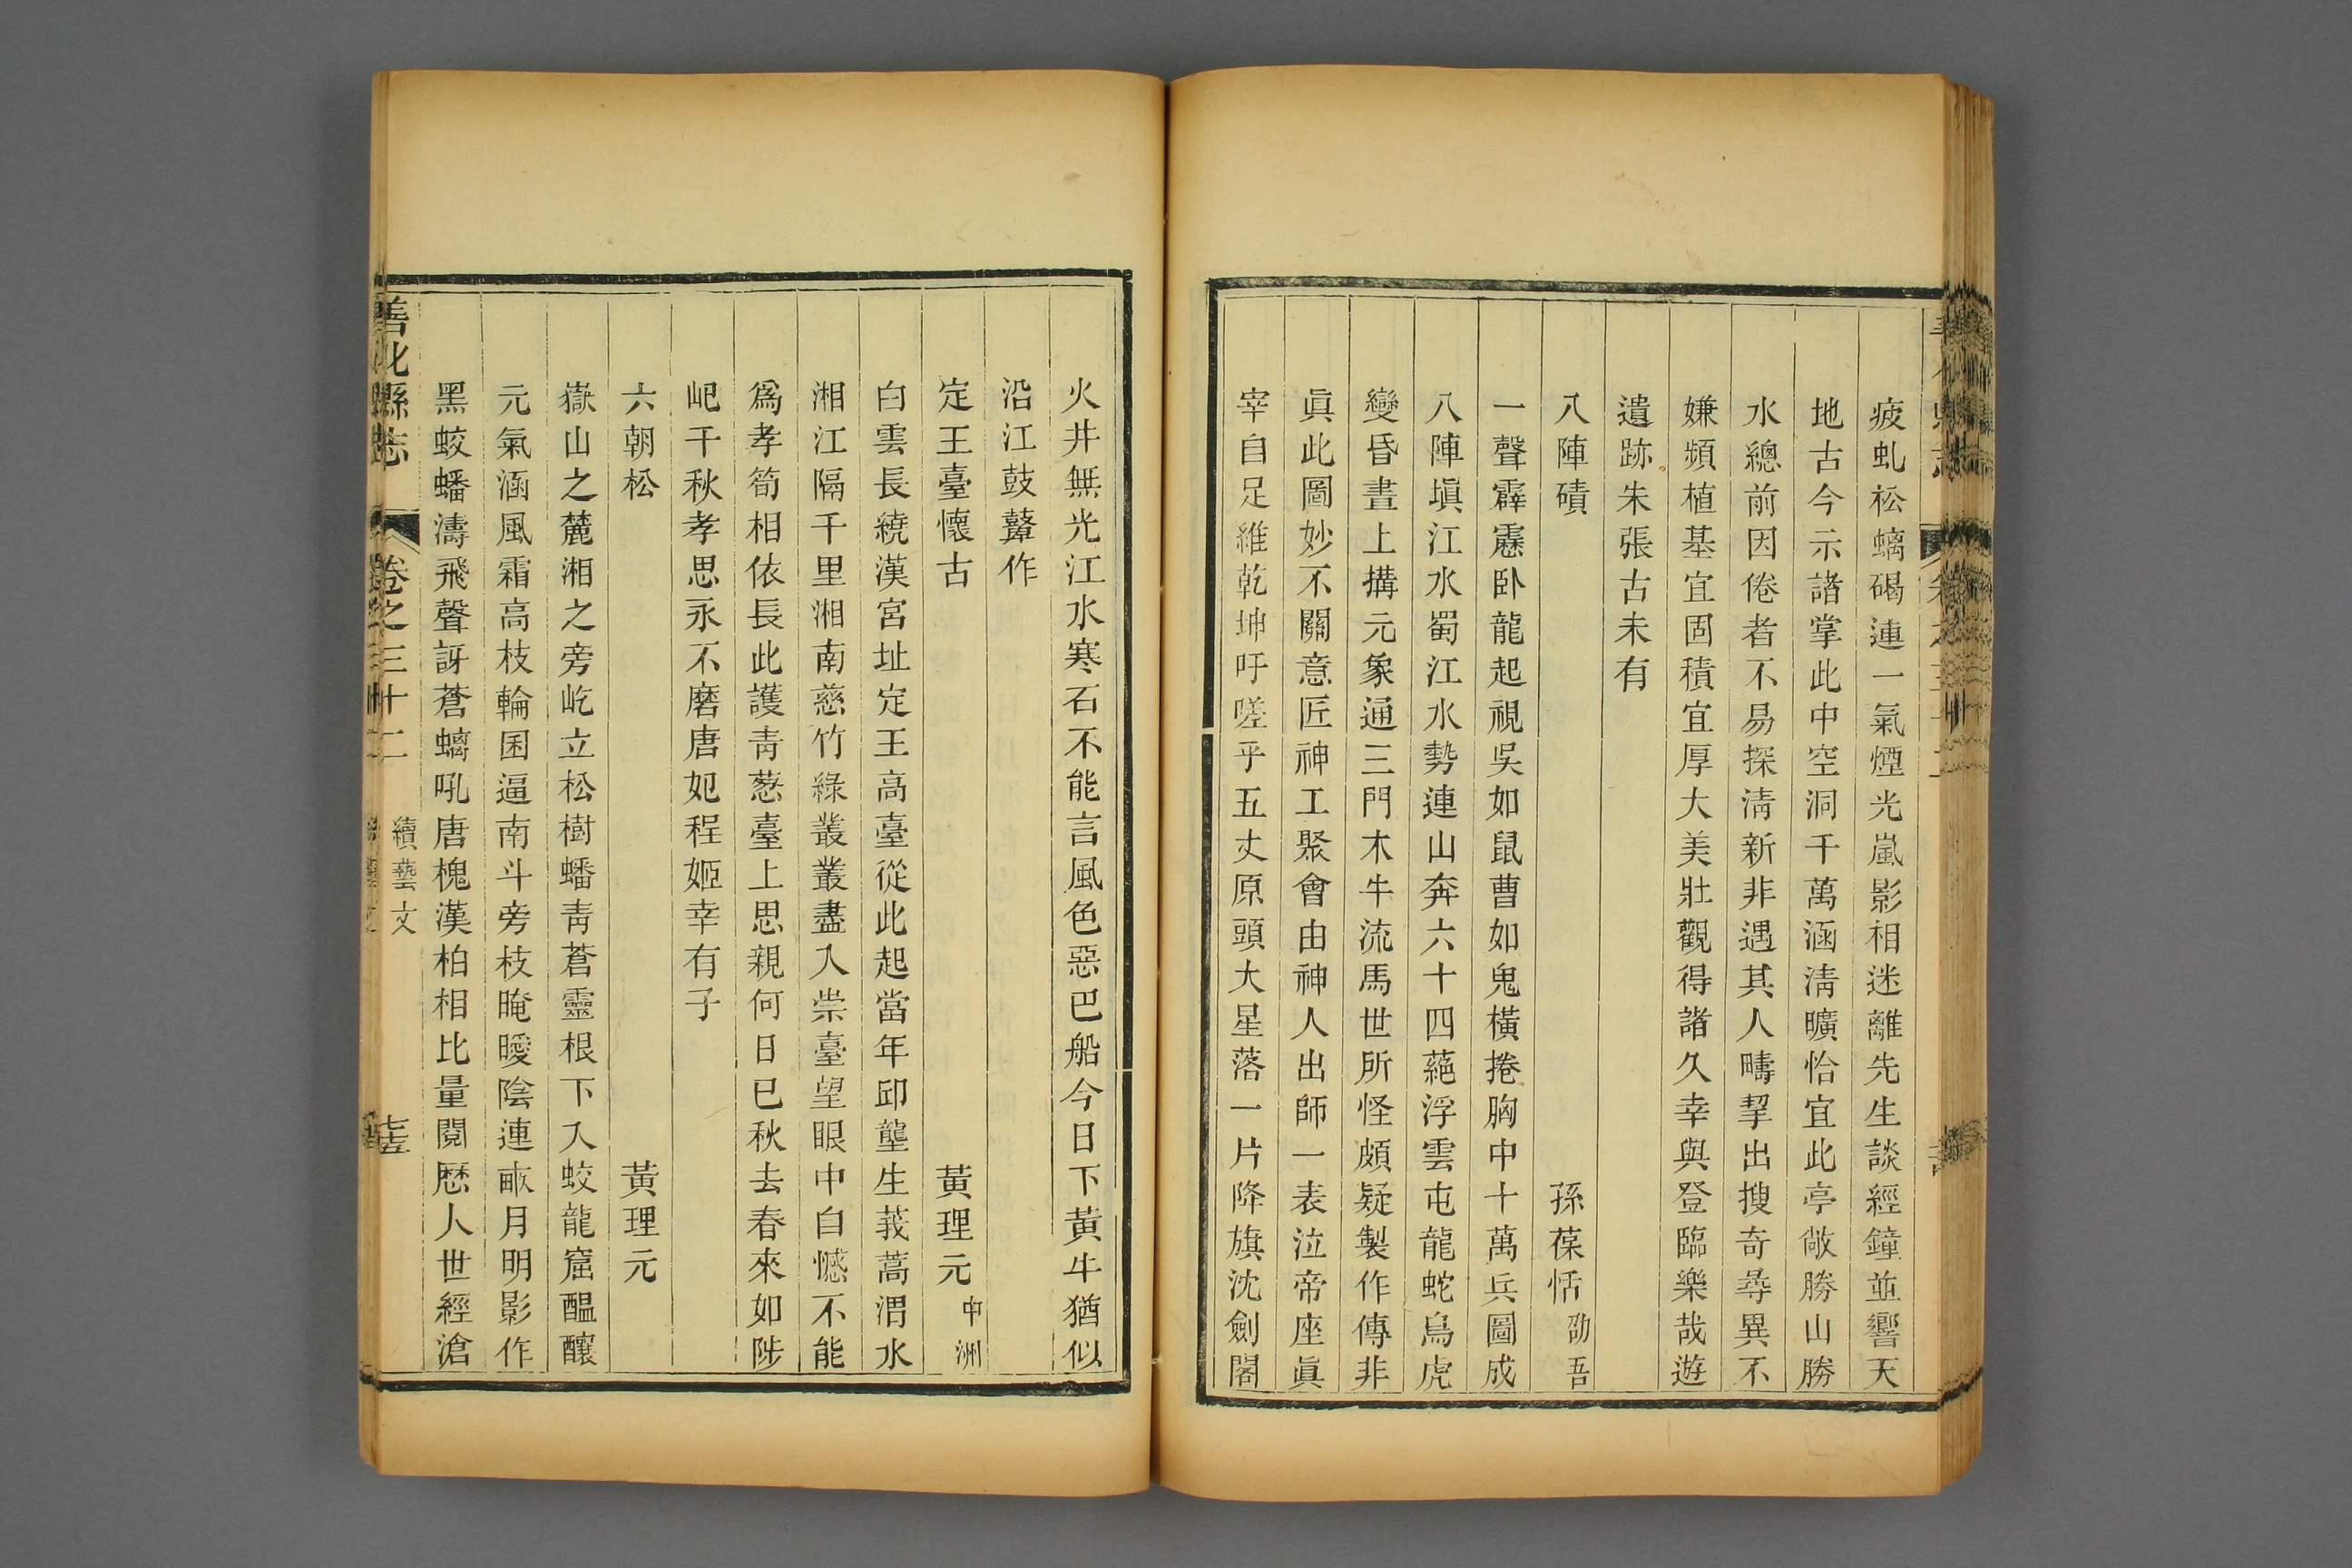 疲虬松螭碣連一氣煙光嵐影相迷離先生談經鐘並響天
地古今示諸掌此中空洞千萬涵淸曠恰宜此亭敞勝山勝
水總前因倦者不易探淸新非遇其人疇挈出搜奇尋異不
嫌頻植基宜固積宜厚大美壯觀得諸久幸與登臨樂哉遊
遺跡朱張古未有
八陣磧 孫葆恬 劭吾
一聲霹靂卧龍起視吳如鼠曹如鬼橫捲胸中十萬兵圖成
八陣塡江水蜀江水勢連山奔六十四蕝浮雲屯龍蛇鳥虎
變昏晝上搆元象通三門木牛流馬世所怪頗疑製作傳非
眞此圖妙不關意匠神工聚會由神人出師一表泣帝座眞
宰自足維乾坤吁嗟乎五丈原頭大星落一片降旗沈劍閣
火井無光江水寒石不能言風色惡巴船今日下黃牛猶似
沿江鼓鼙作
定王臺懷古 黃理元 中洲
白雲長繞漢宮址定王高臺從此起當年邱壟生莪蒿渭水
湘江隔千里湘南慈竹綠叢叢盡入崇臺望眼中自憾不能
爲孝筍相依長此護靑葱臺上思親何日已秋去春來如陟
屺千秋孝思永不磨唐妃程姬幸有子
六朝松 黃理元
嶽山之麓湘之旁屹立松樹蟠靑蒼靈根下入蛟龍窟醞釀
元氣涵風霜高枝輪囷逼南斗旁枝晻曖陰連畝月明影作
黑蛟蟠濤飛聲訝蒼螭吼唐槐漢柏相比量閱歷人世經滄
善化縣志 卷之三十二 續藝文 七五